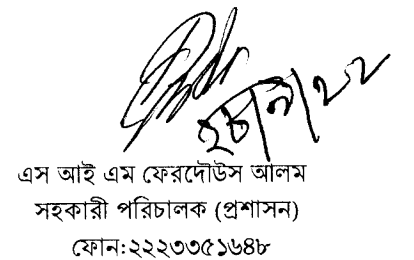 এস আই এম ফেরদৌউস আলম
সহকারী পরিচালক (প্রশাসন)
ফোন:২২২৩৩৫১৬৪৮